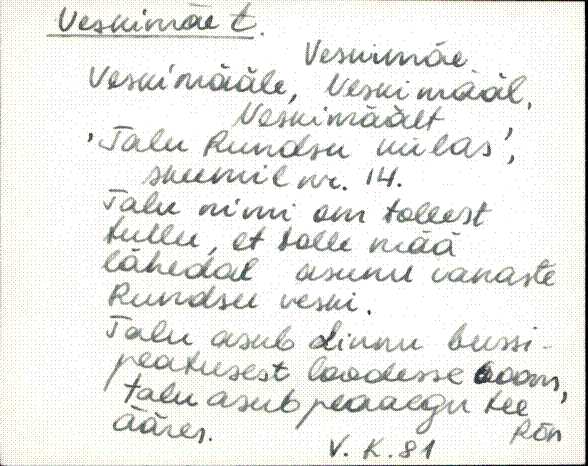 Veskimäe t.
Veskimäe
Veskimääle, Veskimääl,
Veskimäält
'Talu Rundsu külas',
skeemil nr. 14.
Talu nimi om tollest
tullu, et tolle mää
lähedal asunu vanaste
Rundsu veski.
Talu asub Linnu bussi-
peatusest loodesse 600m,
talu asub peaaegu tee
ääres. Rõn
V. K. 81